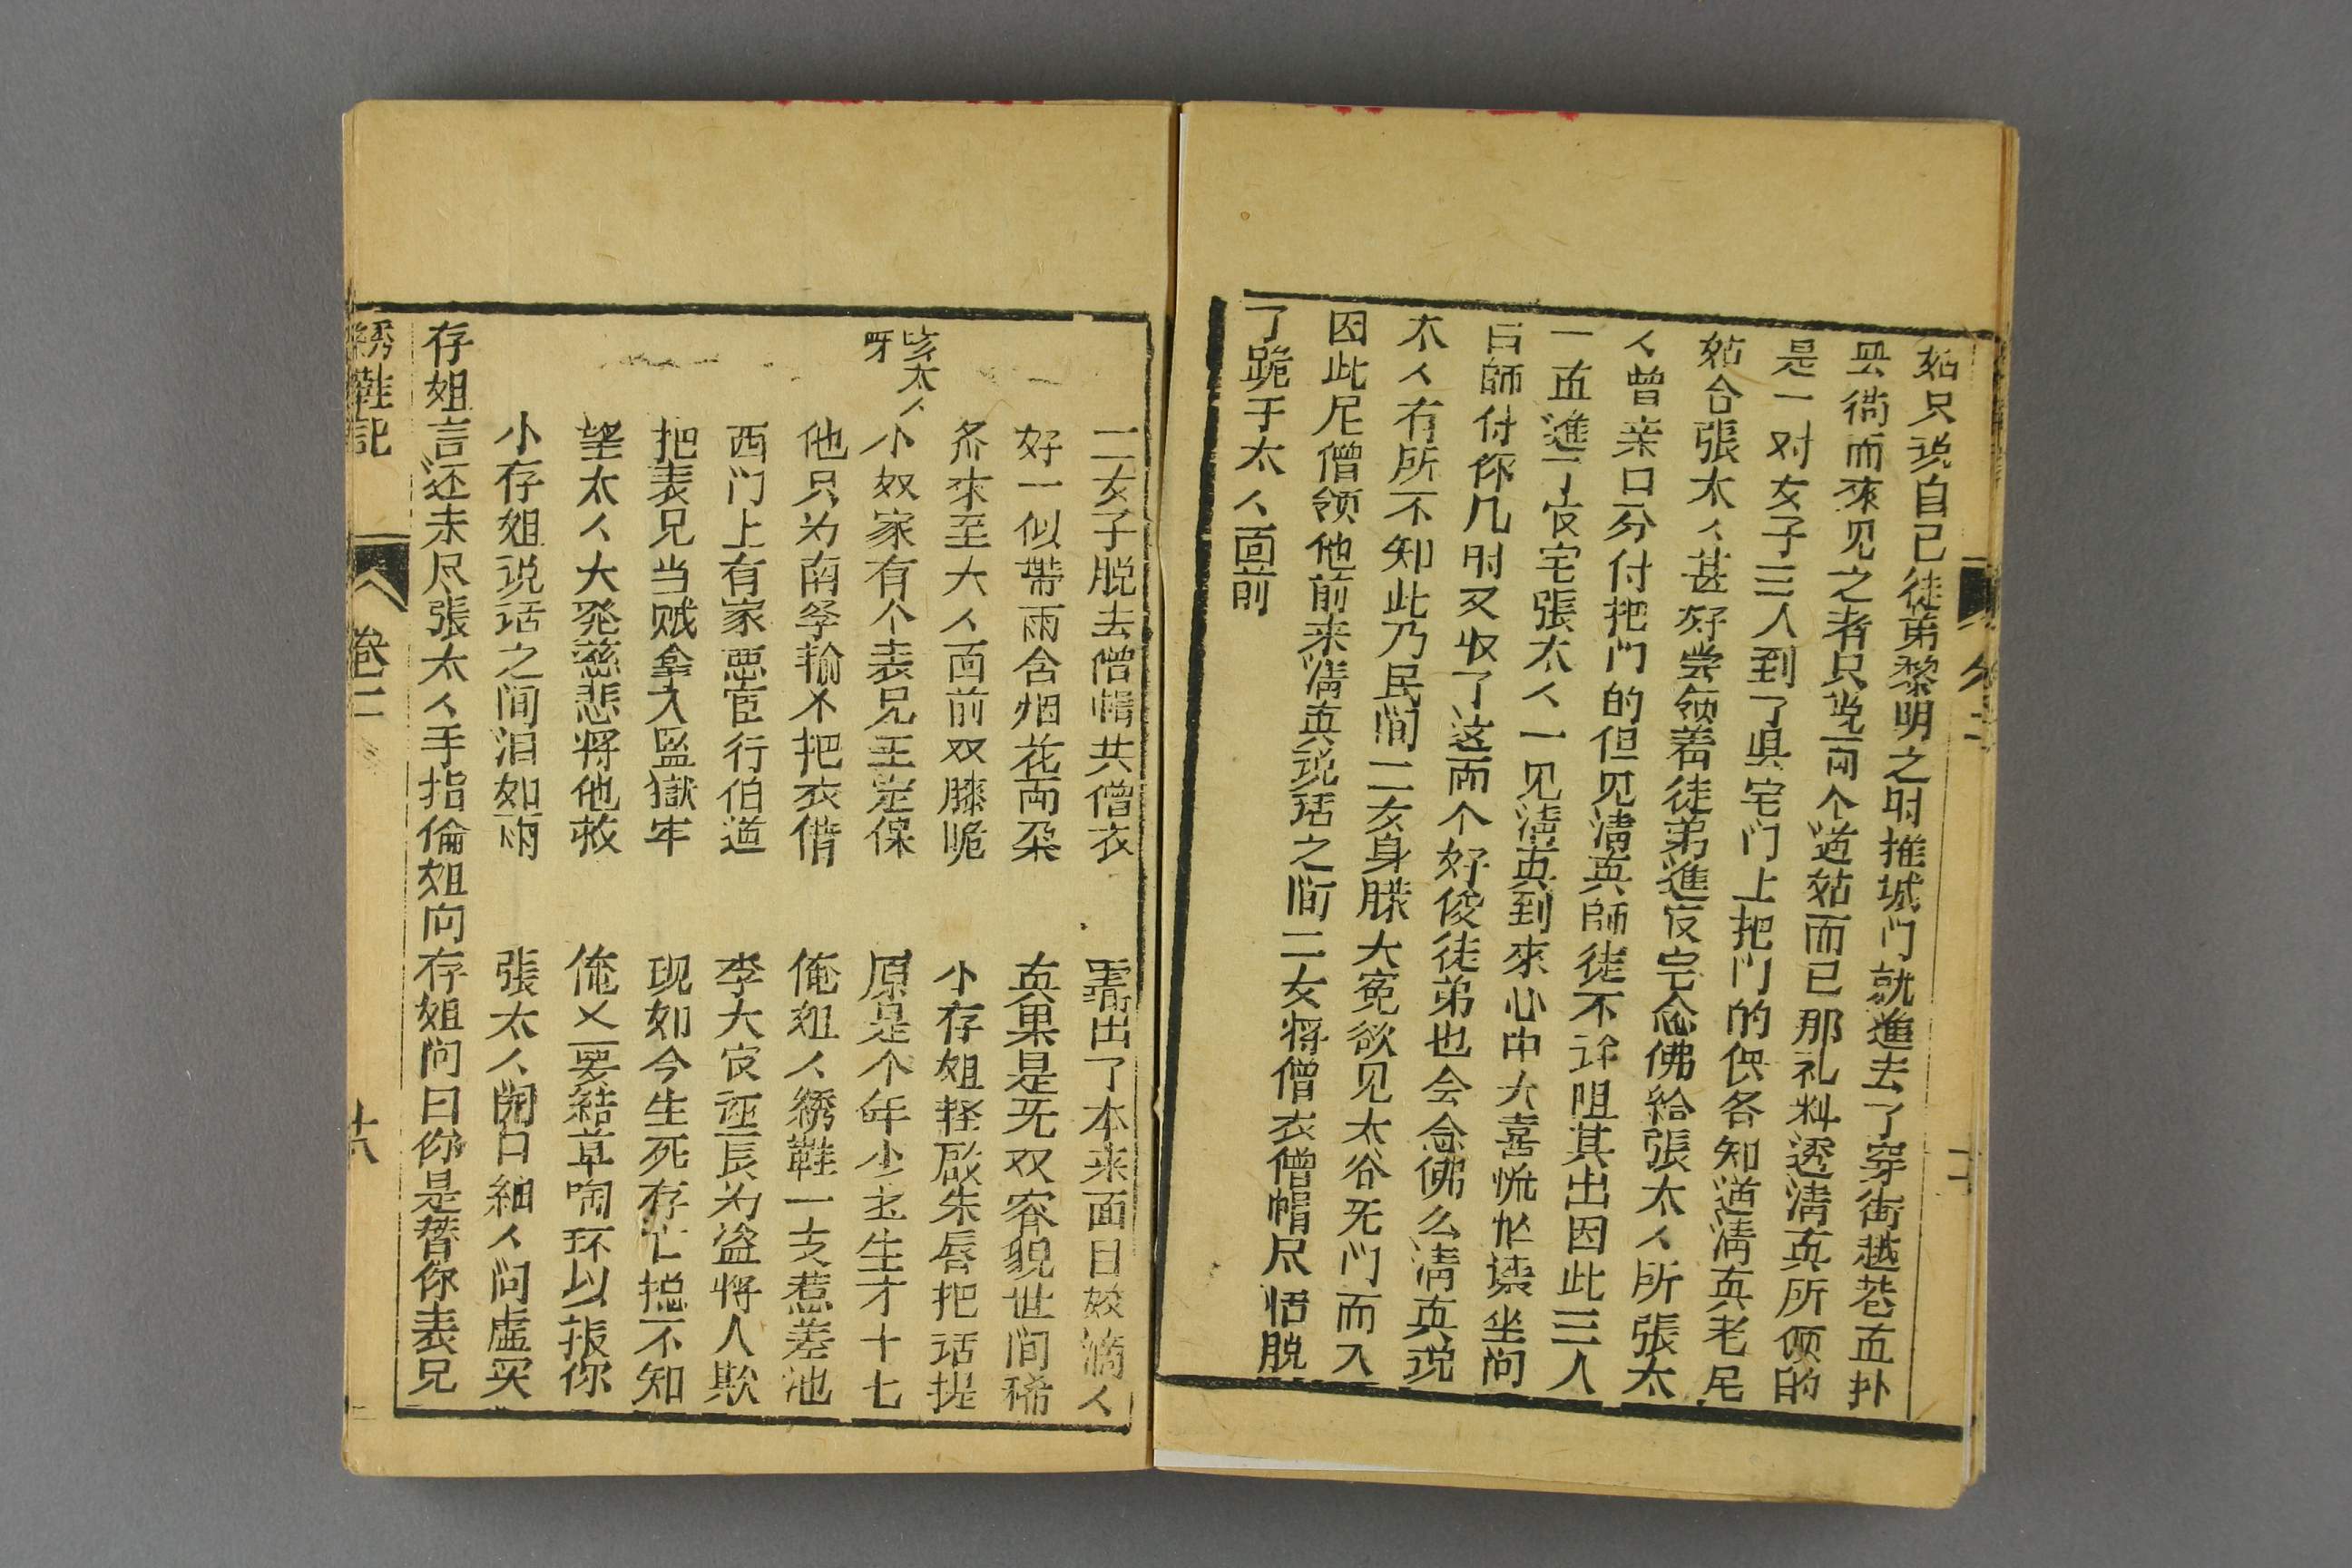 姑只说自已徒弟黎明之时推城门就進去了穿街越巷直扑
县衙而來见之者只当两个道姑而已那礼料透清真所领的
是一对女子三人到了县宅门上把门的俱各知道清真老尼
姑合張太人甚好尝领着徒弟進宅念佛給張太人所張太
人曾亲口分付把门的但见清真師徒不许阻其出因此三人
一直進了宅張太人一见清真到來心中大喜慌忙讓坐问
曰師付你几时又收了这两个好俊徒弟也会念佛么清真说
太人有所不知此乃民间二女身朦大冤欲见太谷无门而入
因此尼僧领他前来清真说话之间二女将僧衣僧帽尽情脱
了跪于太人面前
二女子脱去僧帽共僧衣 露出了本来面目姣滴人
好一似帶雨含烟花两朵 真果是无双容貌世间稀
齐來至大人面前双膝跪 小存姐輕啟朱唇把话提
太人呀
小奴家有个表兄王定保 原是个年少書生才十七
他只为南学输人把衣借 俺姐人綉鞋一支惹差池
西门上有家恶宦行伯道 李大官诬良为盗将人欺
把表兄当贼拿入監獄牢 现如今生死存亡摠不知
望太人大発慈悲将他救 俺人要結草啣环以报你
小存姐说话之间泪如雨 張太人開口細人问虛实
存姐言还未尽張太人手指倫姐向存姐问曰你是替你表兄
綉鞋記 卷二 十八